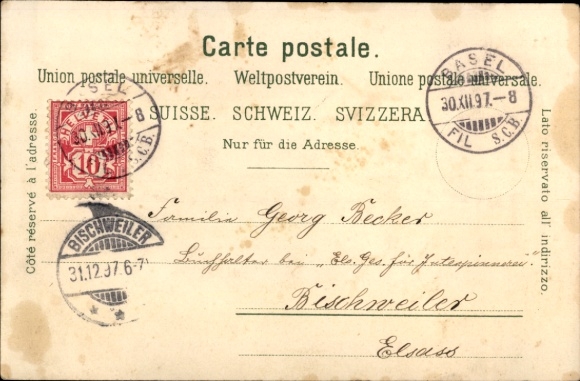 Carte postale.
Union postale universelle. Weltpostverein. Unione postale universale.
SUISSE. SCHWEIZ. SVIZZERA
Nur für die Adresse.
Côté réservé à l'adresse.
Lato riservato all' indirizzo.
BASEL
30.XII.97.-8
FIL S.C.B.
HELVETIA
10
BASEL
30.XII.97.-8
S.C.B.
BISCHWEILER
31.12.97.6-7
Familie Georg Becker
Buchhalter bei „Els. Ges. für Jutespinnerei“
Bischweiler
Elsass